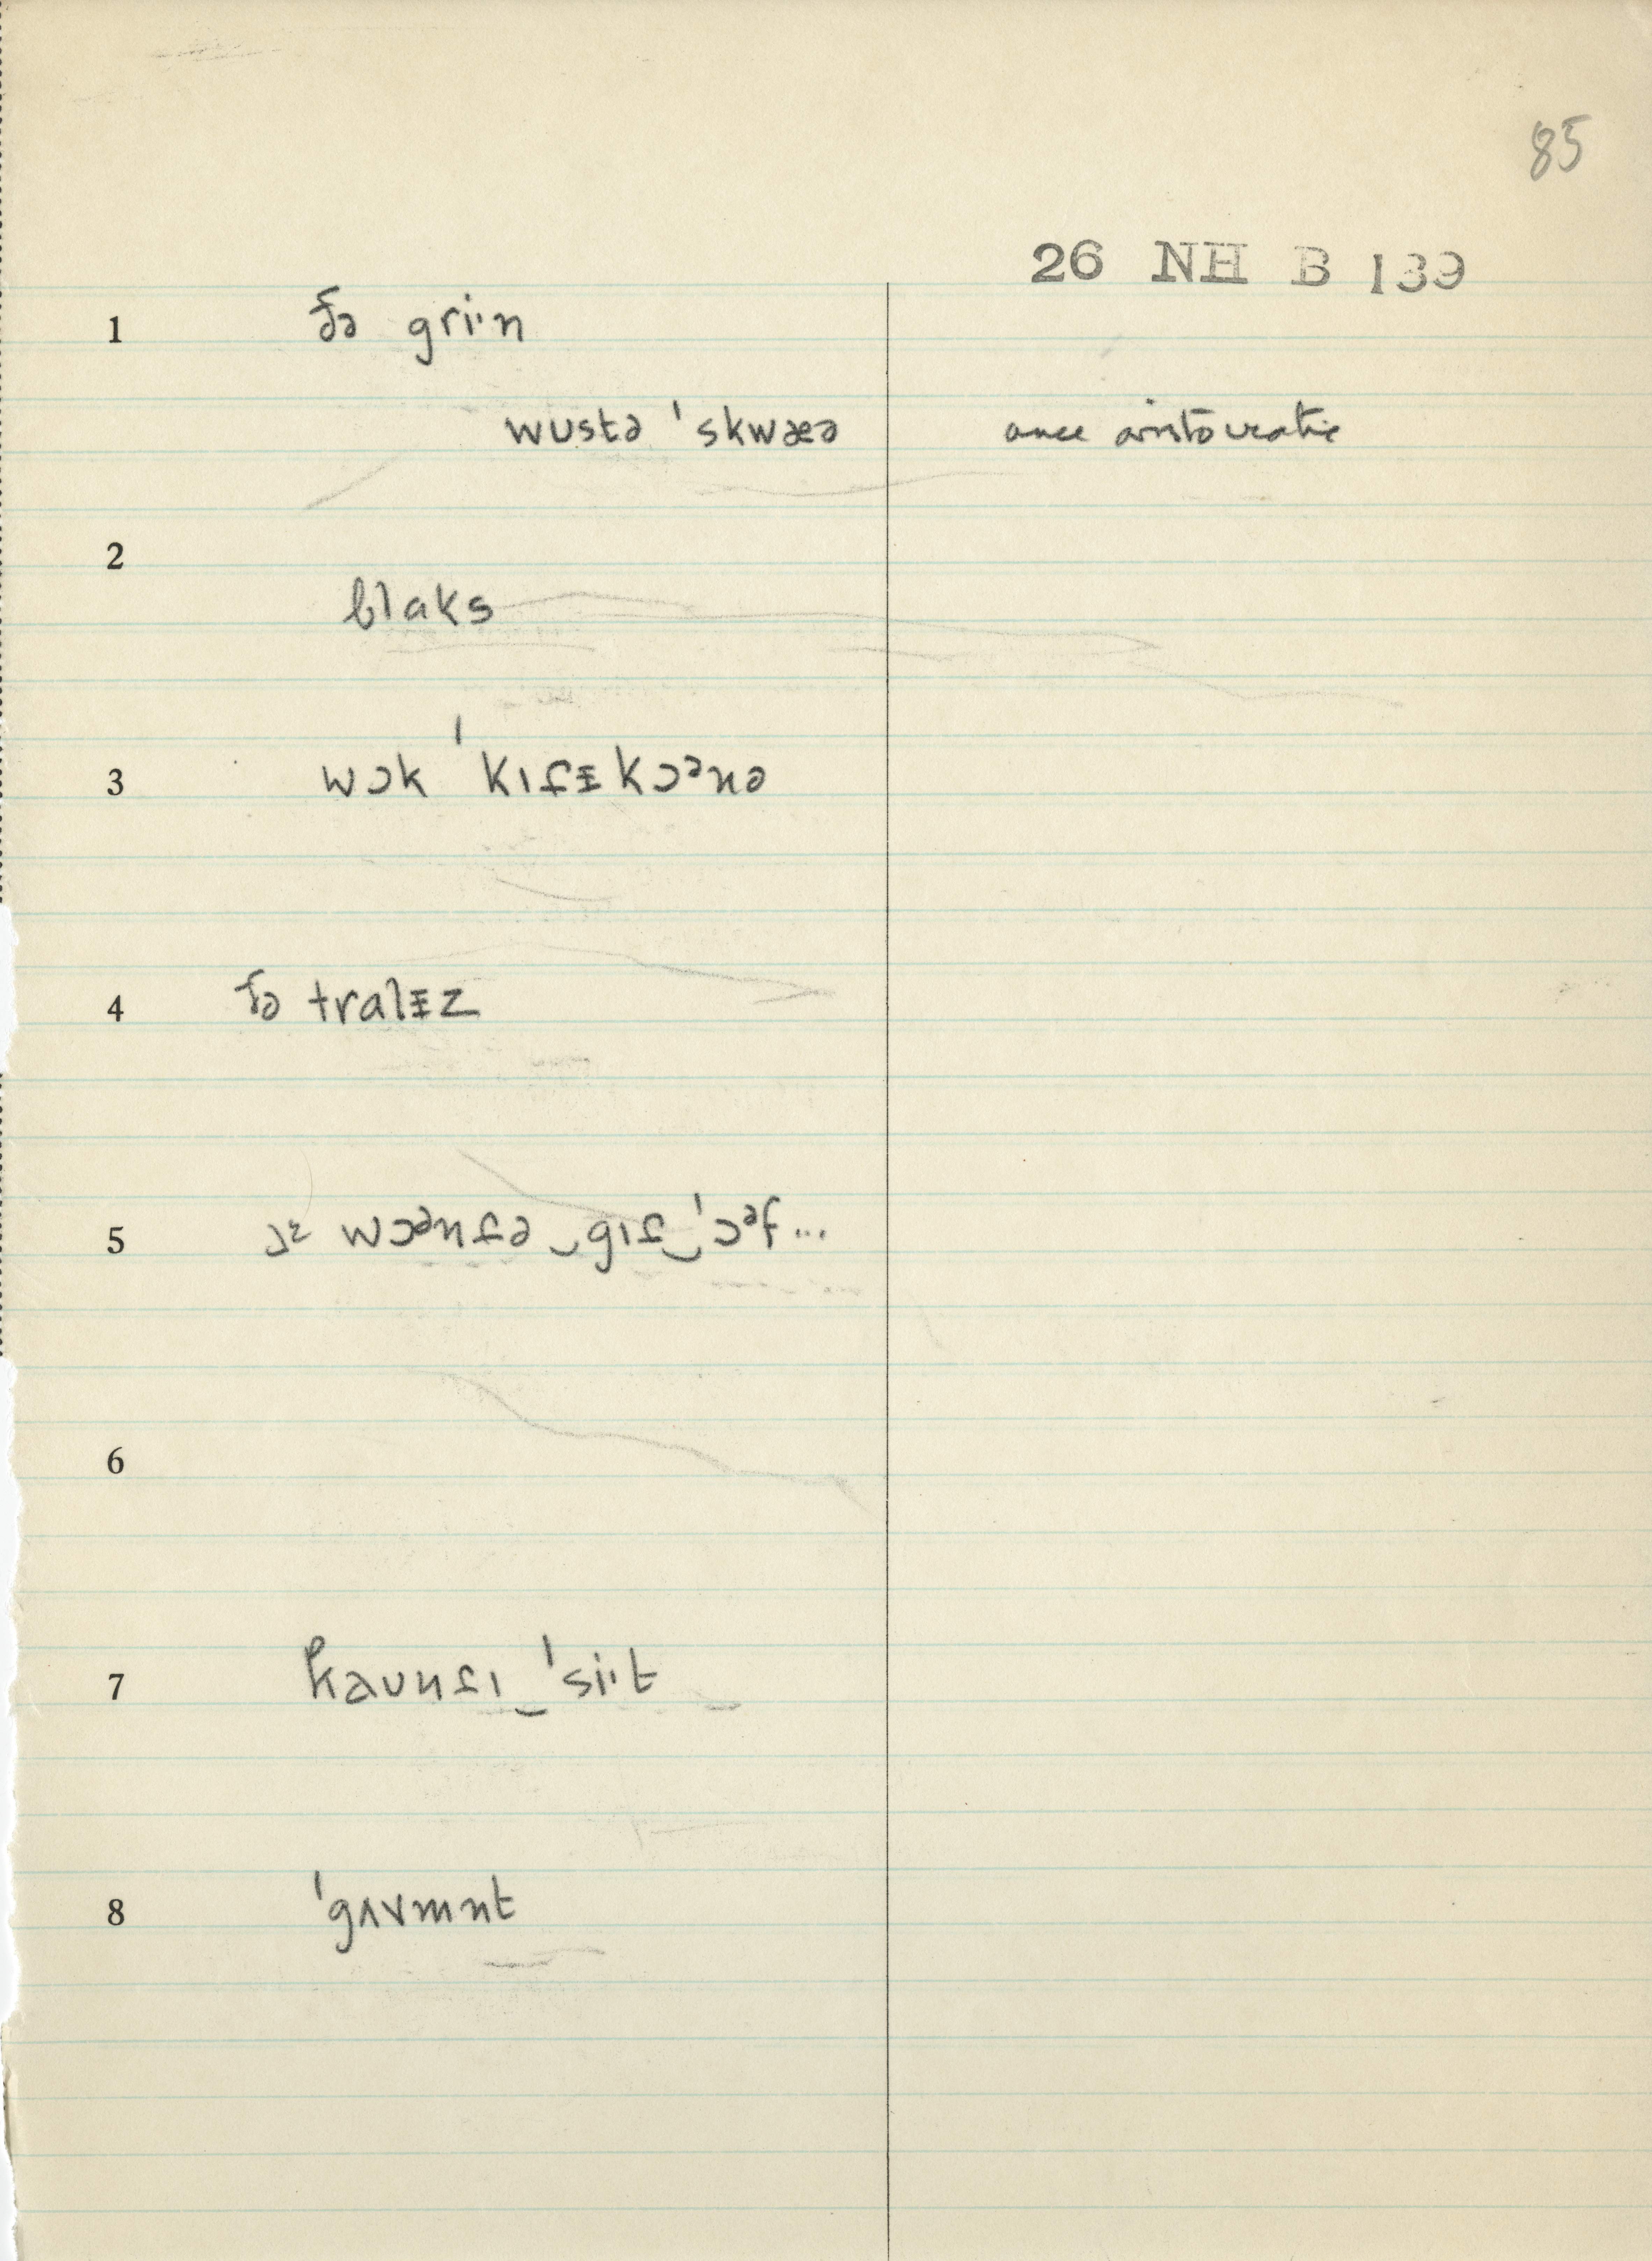 85
26 NH B 139
1 ðə griˑn
wustə ˈskwæə once aristocratic
2
blaks
3 wɔk ˈkɪt̬ɨkɔᵊnə
4 ðə tralɨz
5 wɔənt̬ə‿gɪt̬‿ˈɔᵊf...
6
7 kaʊnt̬ɪ‿ˈsiˑt
8 ˈgʌvmnt